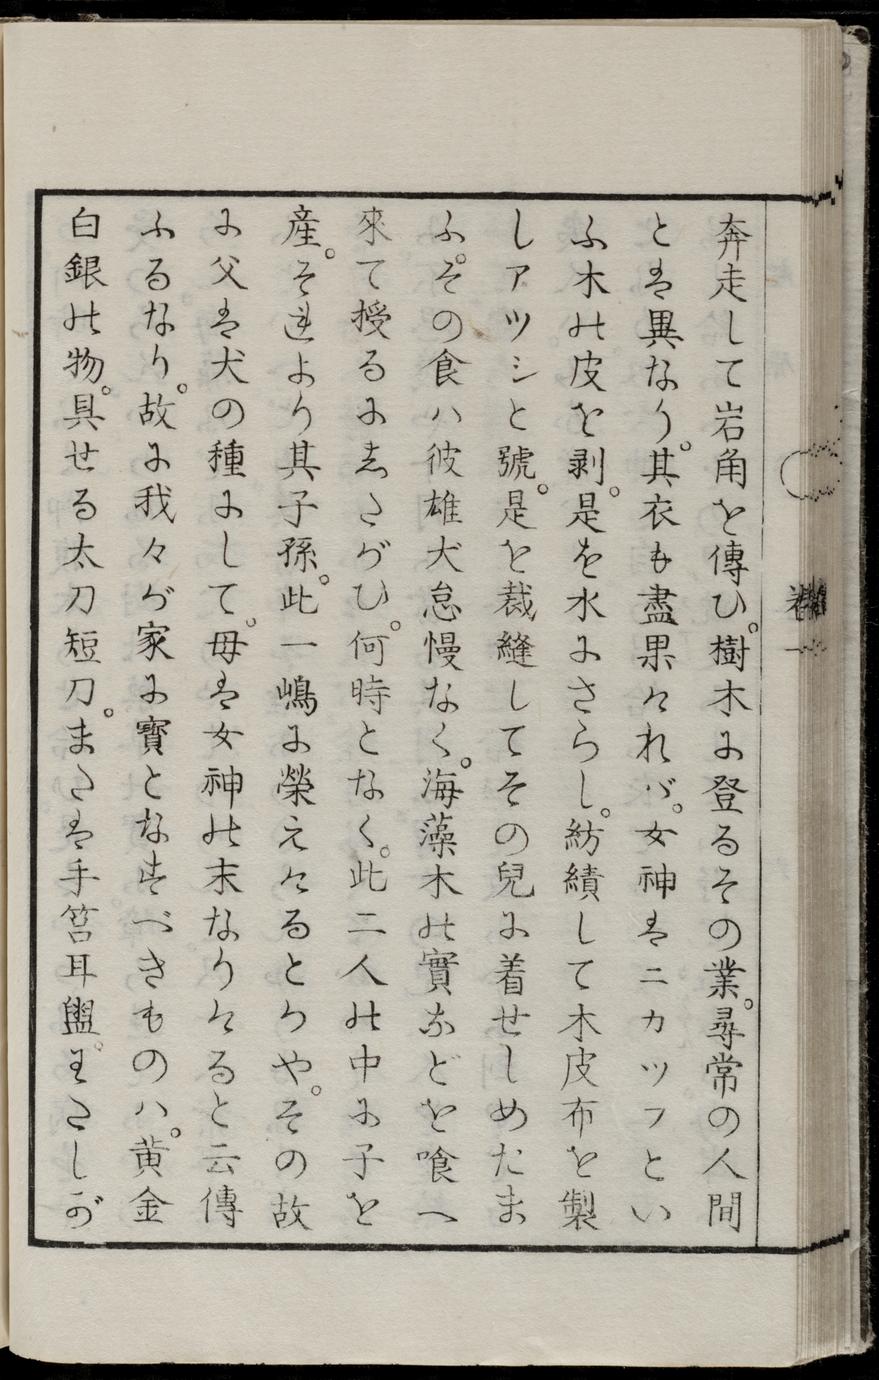 奔走して岩角を傳ひ。樹木に登るその業。尋常の人間
とは異なり。其衣も盡果けれバ。女神はニカツフとい
ふ木の皮を剥。是を水にさらし。紡績して木皮布を製
しアツシと號。是を裁縫してその兒に着せしめたま
ふ。その食ハ彼雄犬怠慢なく。海藻木の實などを喰へ
來て授るにしたがひ。何時となく。此二人の中に子を
産。それより其子孫。此一嶋に榮えけるとかや。その故
に父は犬の種にして。母は女神の末なりけると云傳
ふるなり。故に我々が家に寶となすべきものハ。黄金
白銀の物。具せる太刀短刀。または手筥耳盥。わたしが
卷一